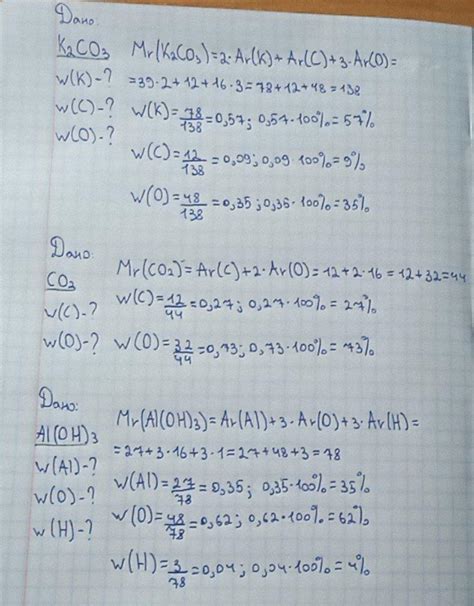 Дано:
K2CO3 Mr(K2CO3)=2·Ar(K)+Ar(C)+3·Ar(O)=
w(K)-? =39·2+12+16·3=78+12+48=138
w(C)-? w(K)=78/138=0,57; 0,57·100%=57%
w(O)-?
w(C)=12/138=0,09; 0,09·100%=9%
w(O)=48/138=0,35; 0,35·100%=35%
Дано:
CO2 Mr(CO2)=Ar(C)+2·Ar(O)=12+2·16=12+32=44
w(C)-? w(C)=12/44=0,27; 0,27·100%=27%
w(O)-? w(O)=32/44=0,73; 0,73·100%=73%
Дано:
Al(OH)3 Mr(Al(OH)3)=Ar(Al)+3·Ar(O)+3·Ar(H)=
=27+3·16+3·1=27+48+3=78
w(Al)-? w(Al)=27/78=0,35; 0,35·100%=35%
w(O)-? w(O)=48/78=0,62; 0,62·100%=62%
w(H)-?
w(H)=3/78=0,04; 0,04·100%=4%